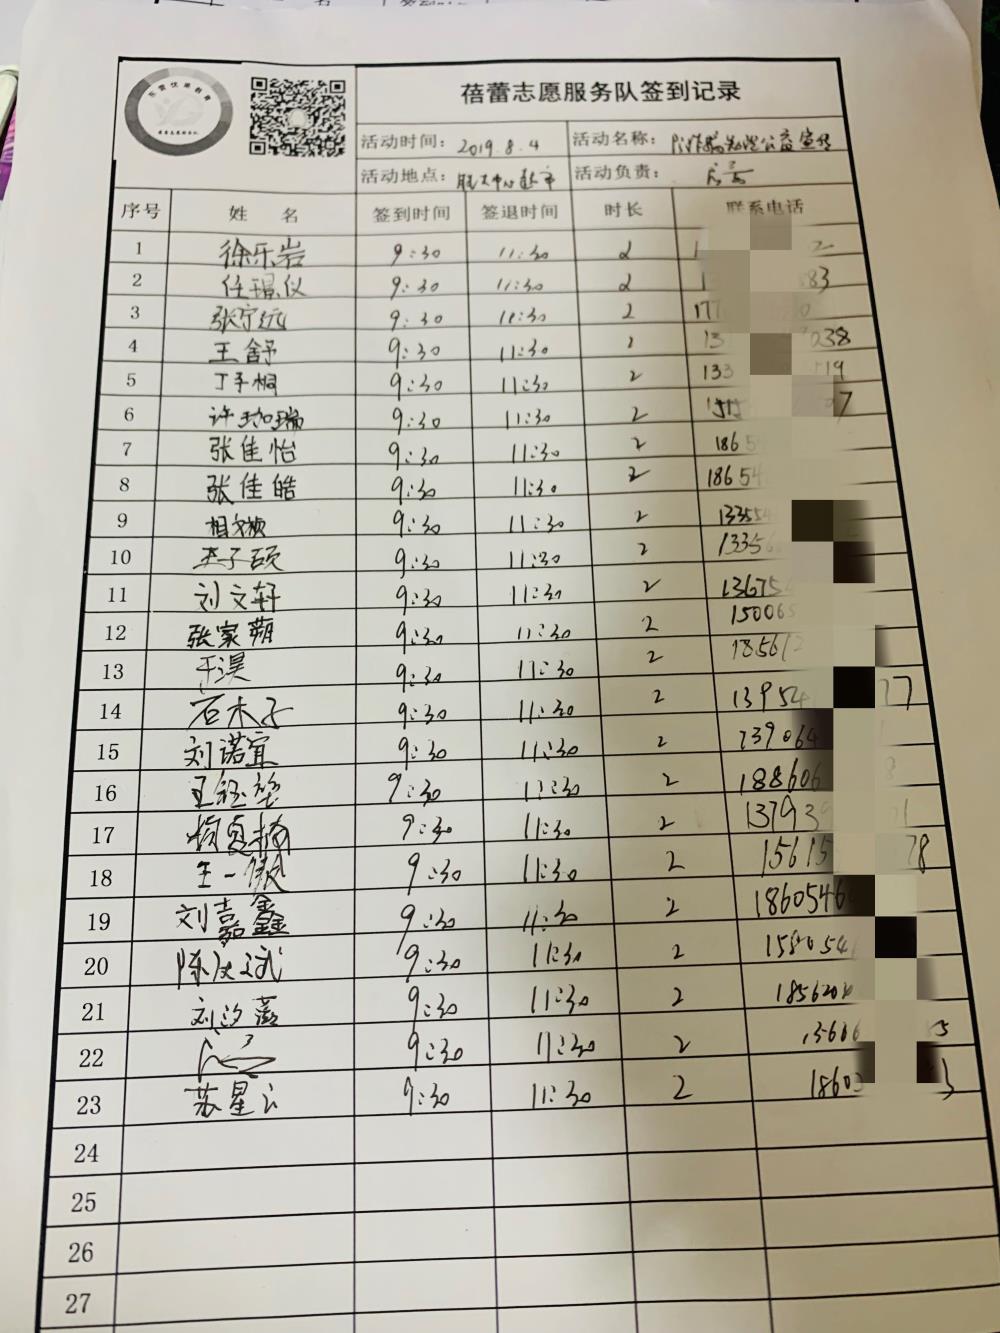 蓓蕾志愿服务队签到记录
活动时间： 2019.8.4 活动名称： 公益宣传
活动地点： 活动负责：
序号 姓 名 签到时间 签退时间 时长 联系电话
1 徐乐岩 9:30 11:30 2
2 任璟仪 9:30 11:30 2
3 张宁远 9:30 11:30 2 177
4 王舒 9:30 11:30 2 13 038
5 丁子桐 9:30 11:30 2 133 519
6 许珈瑞 9:30 11:30 2 07
7 张佳怡 9:30 11:30 2 1865
8 张佳皓 9:30 11:30 2 18654
9 9:30 11:30 2 13354
10 子硕 9:30 11:30 2 13356
11 刘文轩 9:30 11:30 2 13675
12 张家蒴 9:30 11:30 2 15006
13 于淏 9:30 11:30 2 18561
14 石木子 9:30 11:30 2 13954 77
15 刘诺宜 9:30 11:30 2 139064
16 王钰堃 9:30 11:30 2 188606 8
17 9:30 11:30 2 13793
18 王一傲 9:30 11:30 2 15615 78
19 刘嘉鑫 9:30 11:30 2 1860546
20 陈 武 9:30 11:30 2 1580541
21 刘汐 9:30 11:30 2 185620
22 9:30 11:30 2 13606
23 苏星云 9:30 11:30 2 18603
24
25
26
27